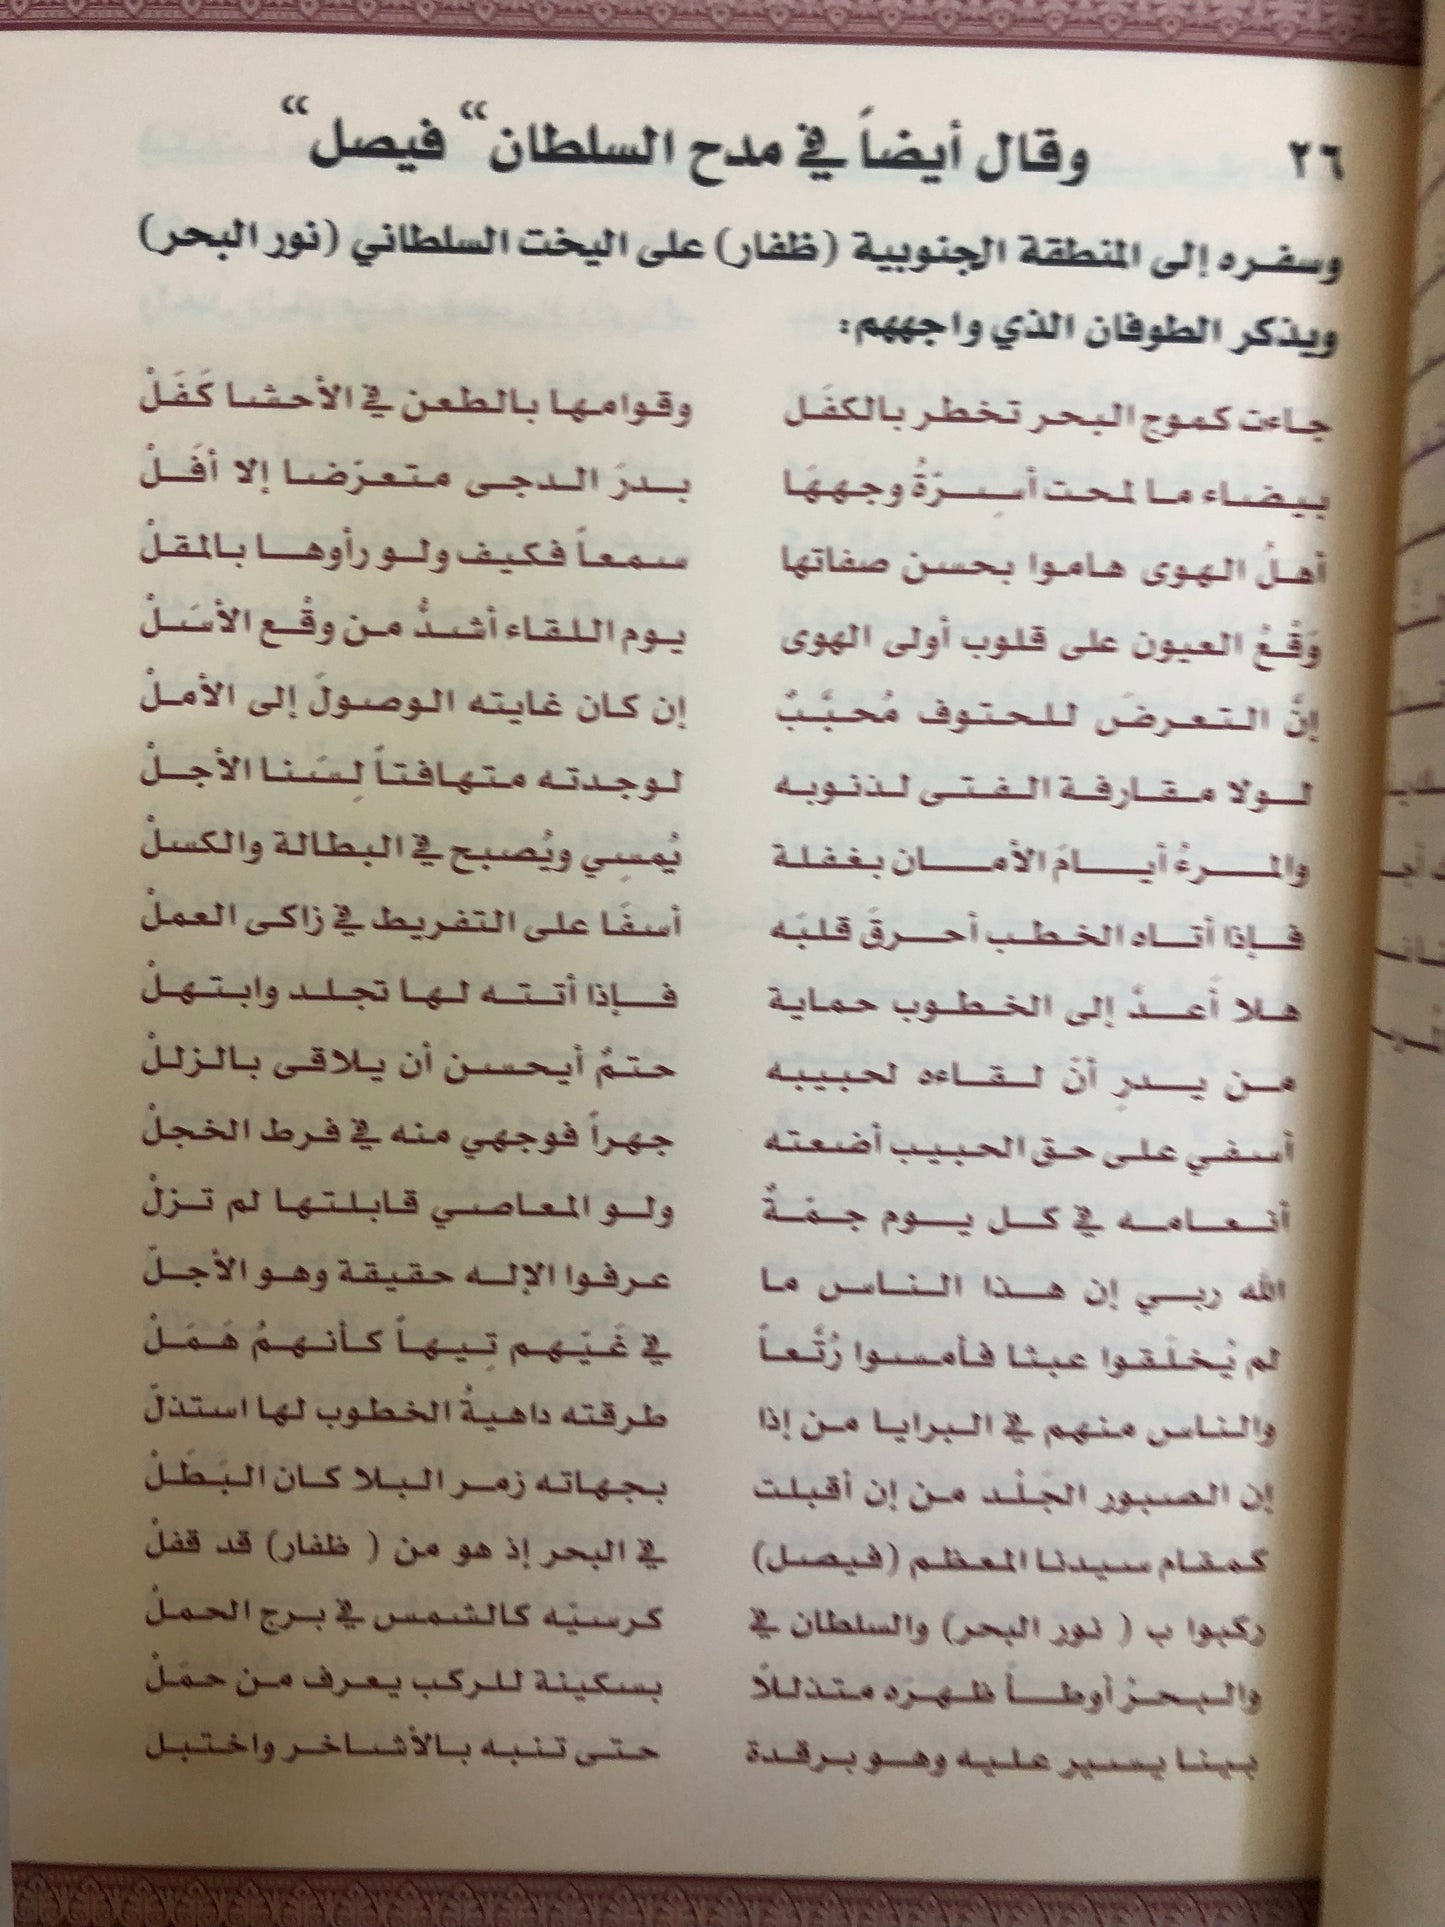 ٢٦ وقال أيضاً في مدح السلطان “فيصل“
وسفره إلى المنطقة الجنوبية (ظفار) على اليخت السلطاني (نور البحر)
ويذكر الطوفان الذي واجههم:
جاءت كموج البحر تخطر بالكفَل وقوامها بالطعن في الأحشا كَفَلْ
بيضاء ما لمحت أسِرّةُ وجههَا بدرَ الدجى متعرّضا إلا أفَلْ
أهلُ الهوى هاموا بحسن صفاتها سمعاً فكيف ولو رأوها بالمقلْ
وَقْعُ العيون على قلوب أولى الهوى يوم اللقاء أشدُّ من وقْع الأسَلْ
إنَّ التعرضَ للحتوف مُحبَّبٌ إن كان غايته الوصولَ إلى الأملْ
لولا مقارفة الفتى لذنوبه لوجدته متهافتاً لِسَنا الأجلْ
والمرءُ أيامَ الأمان بغفلة يُمسِي ويُصبح في البطالة والكسلْ
فإذا أتاه الخطب أحرقَ قلبَه أسفَا على التفريط في زاكى العملْ
هلا أَعدَّ إلى الخطوب حماية فإذا أتته لها تجلد وابتهلْ
من يدرِ أنّ لقاءه لحبيبه حتمٌ أيحسن أن يلاقى بالزللْ
أسفي على حق الحبيب أضعته جهراً فوجهي منه في فرط الخجلْ
أنعامه في كل يوم جمّةٌ ولو المعاصي قابلتها لم تزلْ
الله ربي إن هذا الناس ما عرفوا الإله حقيقة وهو الأجلّ
لم يُخلَقوا عبثا فأمسوا رُتَّعاً في غَيّهم تِيهاً كأنهمُ هَمَلْ
والناس منهم في البرايا من إذا طرقته داهيةُ الخطوب لها استذلّ
إن الصبور الجَلْد من إن أقبلت بجهاته زمر البلا كان البَطَلْ
كمقام سيدنا المعظم (فيصل) في البحر إذ هو من ( ظفار) قد قفلْ
ركبوا ب ( نور البحر) والسلطان في كرسيّه كالشمس في برج الحملْ
والبحرُ أوطأ ظهرَه متذللاً بسكينة للركب يعرف من حمَلْ
بينا يسير عليه وهو برقدة حتى تنبه بالأشاخر واختبل